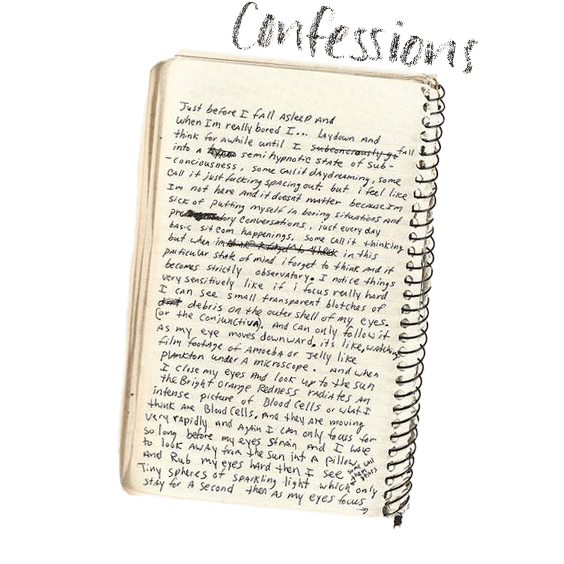 Confessions
Just before I fall Asleep And
when I'm really bored I... Laydown And
think for awhile until I subconciously go fall
into a semi hypnotic state of sub-
-conciousness, some call it daydreaming, some
call it just fucking spacing out but i feel like
Im not here and it doesn't matter because Im
sick of putting myself in boring situations And
ory conversations, just every day
basic sit com happenings. some call it thinking
but when in in this
particular state of mind i forget to think and it
becomes stricly observatory. I notice things
very sensitively like if i focus really hard
I can see small transparent blotches of
debris on the outer shell of my eyes.
(or the conjunctiva). and can only follow it
As my eye moves downward, it's like, watching
film footage of Amoeba or Jelly like
plankton under A microscope. And when
I close my eyes And look up to the sun
the Bright Orange Redness radiates An
intense picture of Blood Cells or what I
think Are Blood Cells. And they are moving
very rapidly and again I can only focus for
so long before my eyes strain and I have
to look Away from the sun into a pillow
And Rub my eyes hard then I see some call them stars
Tiny spheres of sparkling light which only
stay for A second then As my eyes focus
→